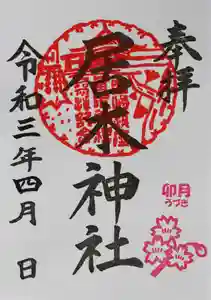 奉拝
居木神社
令和三年四月 日
卯月
うづき